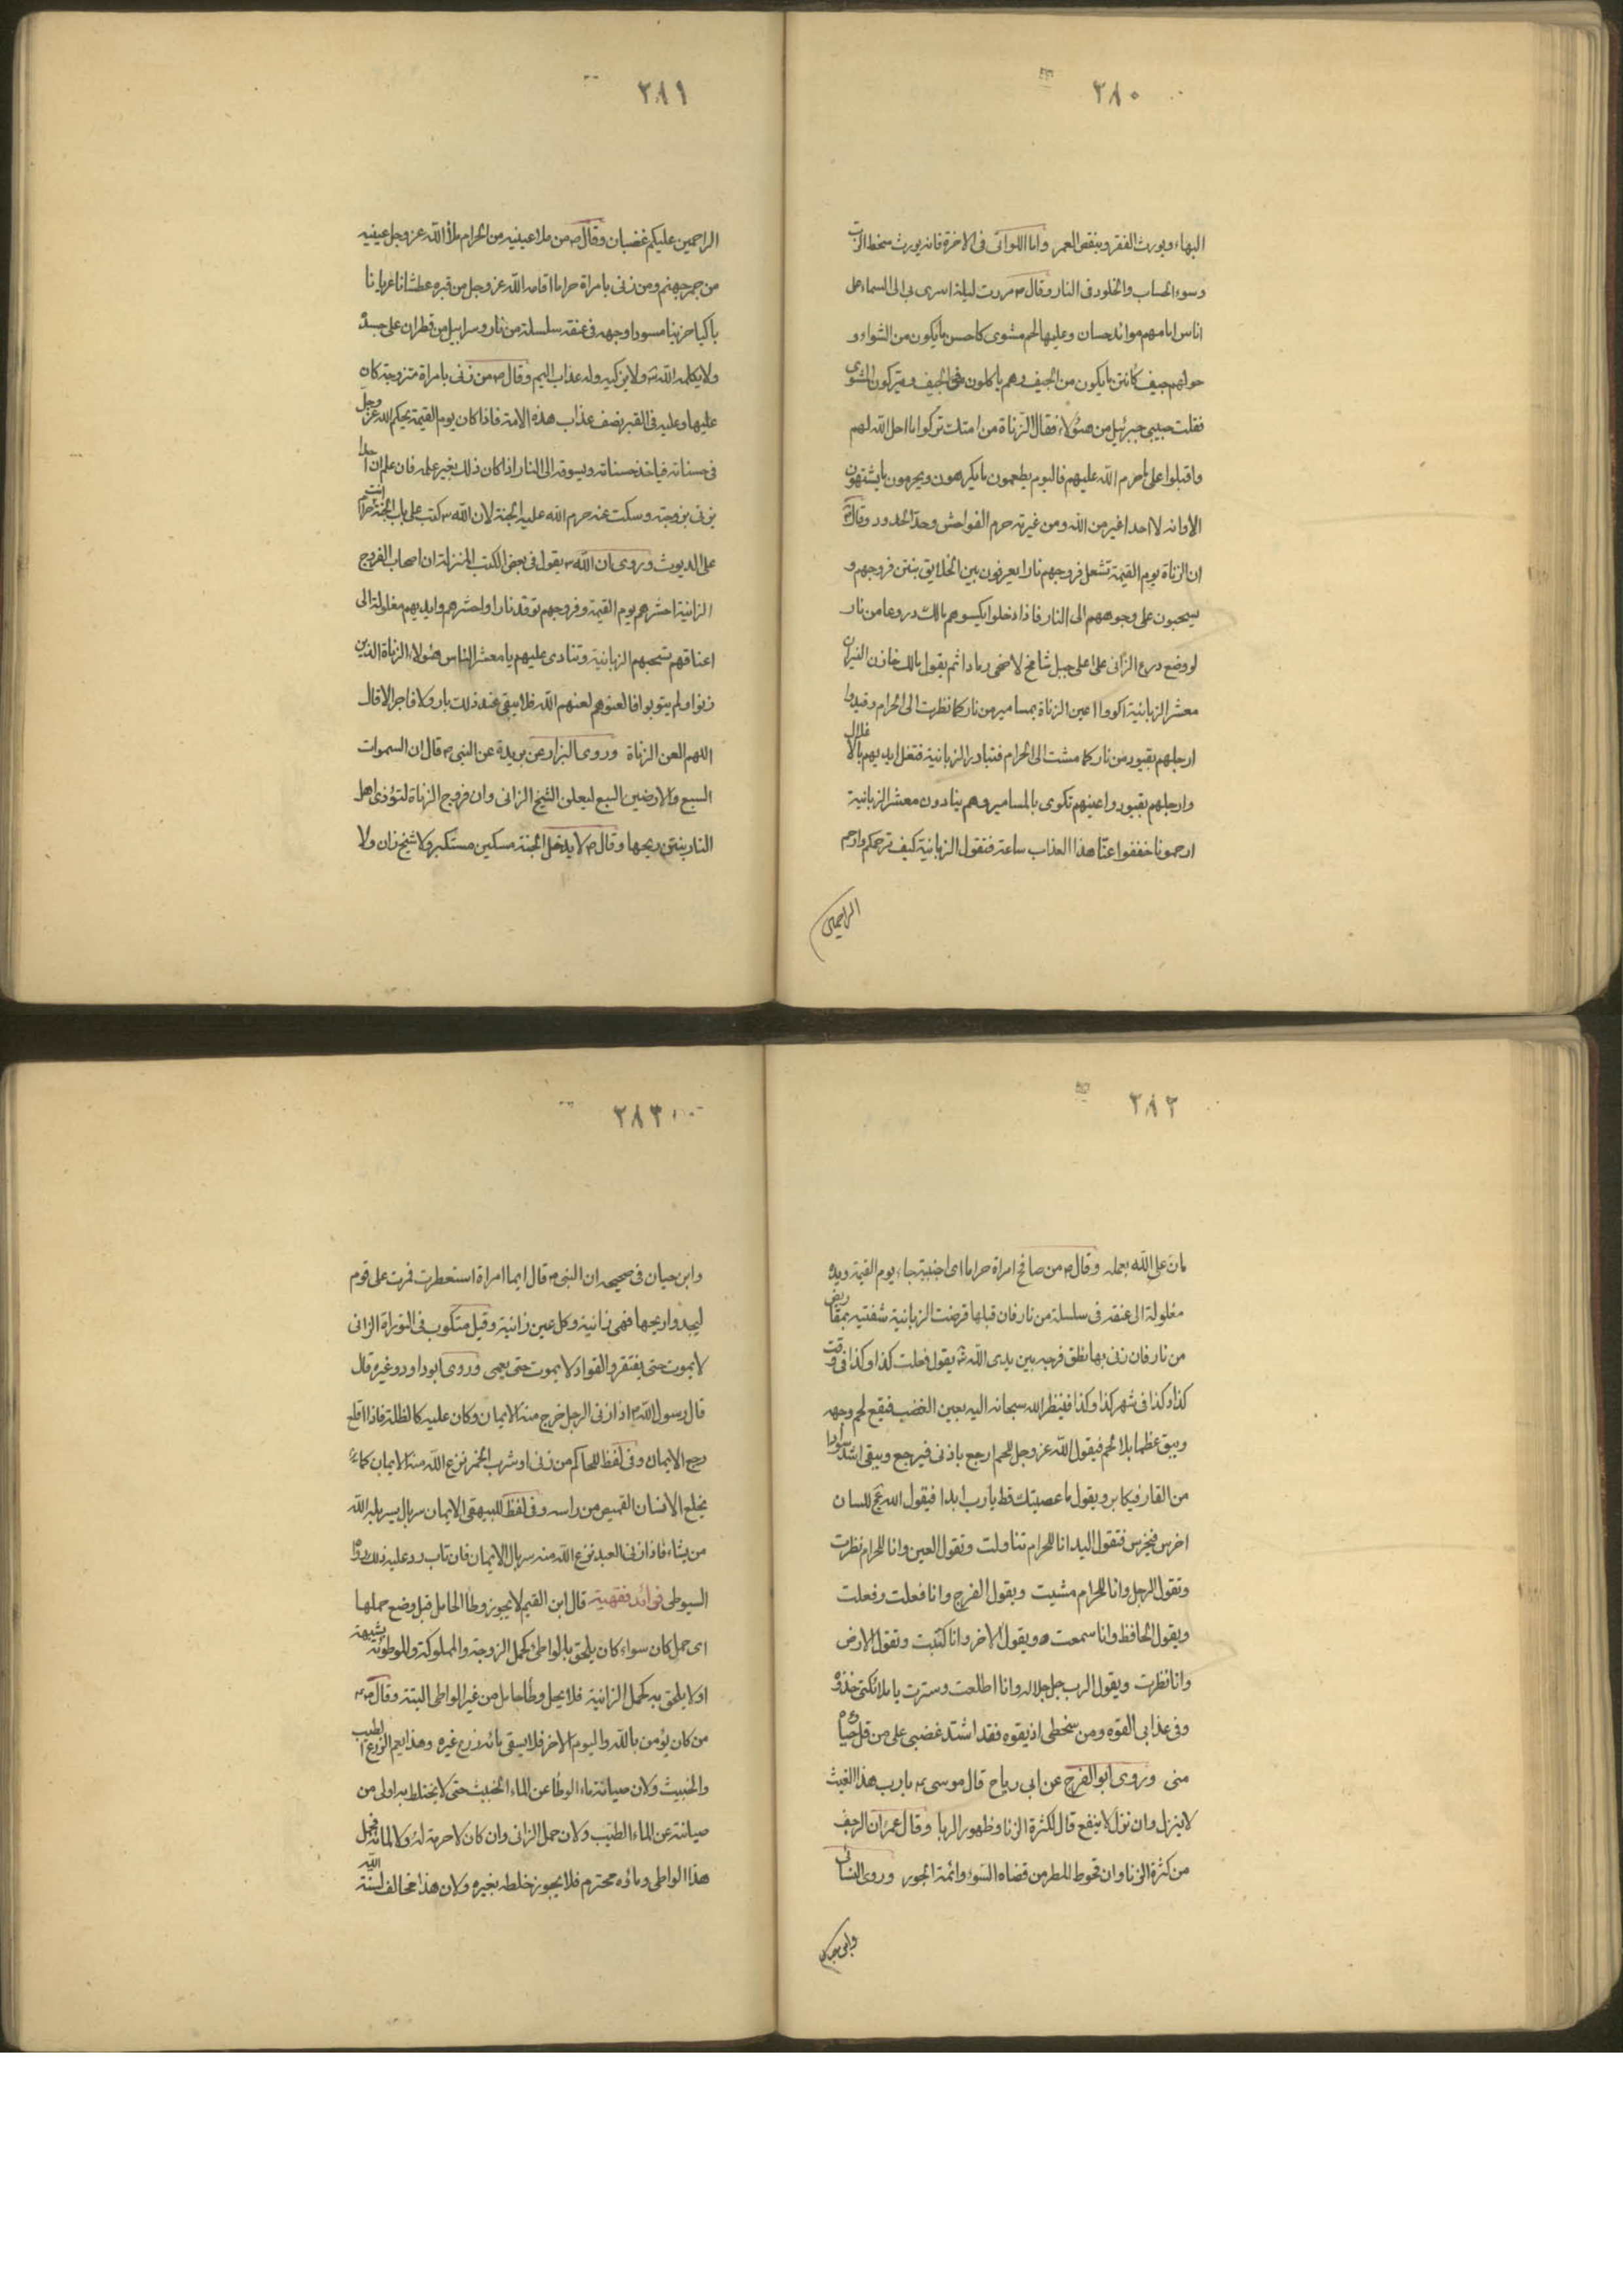 ٢٨٠
البهاء ويورث الفقر وينقص العمر واما اللواتى فى الاخرة فانه يورث سخط الرب
وسوء الحساب والخلود فى النار وقال ص مررت ليلة اسرى بى الى السماء على
اناس امامهم موائد حسان وعليها لحم مشوى كاحسن ما يكون من الشواء و
حولهم جيف كانتن ما يكون من الجيف وهم ياكلون من الجيف ويتركون المشوى
فقلت حبيبى جبرئيل من هؤلاء فقال الزناة من امتك تركوا ما احل الله لهم
واقبلوا على ما حرم الله عليهم فاليوم يطعمون ما يكرهون ويحرمون ما يشتهون
الا وانه لا احدا غير من الله ومن غيرته حرم الفواحش وحد الحدود وقال ص
ان الزناة يوم القيمة تشعل فروجهم نارا يعرفون بين الخلايق بنتن فروجهم و
يسحبون على وجوههم الى النار فاذا دخلوا يكسوهم مالك دروعا من نار
لو وضع درع الزانى على اعلى جبل شامخ لاضحى رمادا ثم يقول مالك خازن النيران
معشر الزبانية اكووا اعين الزناة بمسامير من نار كما نظرت الى الحرام وقيدوا
ارجلهم بقيود من نار كما مشت الى الحرام فتبادر الزبانية فتغل ايديهم بالاغلال
وارجلهم بقيود واعينهم تكوى بالمسامير وهم ينادون معشر الزبانية
ارحمونا خففوا عنا هذا العذاب ساعة فتقول الزبانية كيف نرحمكم وارحم
الراحمين
٢٨١
الراحمين عليكم غضبان وقال ص من ملا عينيه من الحرام ملأ الله عز وجل عينيه
من جمر جهنم ومن زنى بامراة حراما اقامه الله عز وجل من قبره عطشانا عريانا
باكيا حزينا مسودا وجهه فى عنقه سلسلة من نار وسرابيل من قطران على جسده
ولا يكلمه الله ولا يزكيه وله عذاب اليم وقال ص من زنى بامراة متزوجة كان
عليها وعليه فى القبر نصف عذاب هذه الامة فاذا كان يوم القيمة يحكم الله عز وجل
فى حسناته فياخذ حسناته ويسوقه الى النار اذا كان ذلك بغير علمه فان علم ان احدا
يزنى بزوجته وسكت عنه حرم الله عليه الجنة لان الله كتب على باب الجنة انت حرام
على الديوث وروى ان الله يقول فى بعض الكتب المنزلة ان اصحاب الفروج
الزانية احشرهم يوم القيمة وفروجهم توقد نارا واحشرهم وايديهم مغلولة الى
اعناقهم تسحبهم الزبانية وتنادى عليهم يا معشر الناس هؤلاء الزناة الذين
زنوا ولم يتوبوا فالعنوهم لعنهم الله فلا يبقى عند ذلك بار ولا فاجر الا قال
اللهم العن الزناة وروى البزار عن بريدة عن النبى ص قال ان السموات
السبع والارضين السبع ليعلن الشيخ الزانى وان فروج الزناة لتؤذى اهل
النار بنتن ريحها وقال ص لا يدخل الجنة مسكين مستكبر ولا شيخ زان ولا
٢٨٢
مان على الله بعمله وقال ص من صافح امراة حراما اى اجنبية جاء يوم القيمة ويده
مغلولة الى عنقه فى سلسلة من نار فان قبلها قرضت الزبانية شفتيه بمقاريض
من نار فان زنى بها نطق فرجه بين يدى الله يقول فعلت كذا وكذا فى وقت
كذا وكذا فى شهر كذا وكذا فينظر الله سبحانه اليه بعين الغضب فيقع لحم وجهه
ويبق عظما بلا لحم فيقول الله عز وجل للحم ارجع باذنى فيرجع ويبقى اشد سوادا
من القار فيكابر ويقول ما عصيتك قط يا رب ابدا فيقول الله عج للسان
اخرس فيخرس فتقول اليد انا للحرام تناولت وتقول العين وانا للحرام نظرت
وتقول الرجل وانا للحرام مشيت ويقول الفرج وانا فعلت وفعلت
ويقول الحافظ وانا سمعت ويقول الاخر وانا كتبت وتقول الارض
وانا نظرت ويقول الرب جل جلاله وانا اطلعت وسترت يا ملائكتى خذوه
وفى عذابى القوه ومن سخطى اذيقوه فقد اشتد غضبى على من قل حياؤه
منى وروى ابو الفرج عن ابى رياح قال موسى يا رب هذا الغيث
لا ينزل وان نزل لا ينفع قال لكثرة الزنا وظهور الربا وقال عمر ان الرجف
من كثرة الزنا وان قحوط المطر من قضاه السوء وائمة الجور وروى النسائى
وابن حيان
٢٨٣
وابن حيان فى صحيحه ان النبى ص قال ايما امراة استعطرت فمرت على قوم
ليجدوا ريحها فهى زانية وكل عين زانية وقيل مكتوب فى التوراة الزانى
لا يموت حتى يفتقر والقواد لا يموت حتى يعمى وروى ابو داود وغيره قال
قال رسول الله اذا زنى الرجل خرج منه الايمان وكان عليه كالظلة فاذا اقلع
رجع الايمان وفى لفظ للحاكم من زنى او شرب الخمر نزع الله منه الايمان كما
يخلع الانسان القميص من راسه وفى لفظ للبيهقى الايمان سربال يسربله الله
من يشاء فاذا زنى العبد نزع الله منه سربال الايمان فان تاب رد عليه ذلك رواه
السيوطى فوائد فقهية قال ابن القيم لا يجوز وطأ الحامل قبل وضع حملها
اى حمل كان سواء كان يلحق بالواطئ كحمل الزوجة والمملوكة والموطوئة بشبهة
او لا يلحق به كحمل الزانية فلا يحل وطأ حامل من غير الواطى البتة وقال ص
من كان يؤمن بالله واليوم الاخر فلا يسقى مائه زرع غيره وهذا يعم الزرع الطيب
والخبيث ولان صيانة ماء الوطأ عن الماء الخبيث حتى لا يختلط به اولى من
صيانته عن الماء الطيب ولان حمل الزانى وان كان لا حرمة له ولا لمائه فحمل
هذا الواطى وماؤه محترم فلا يجوز خلطه بغيره ولان هذا مخالف لسنة الله